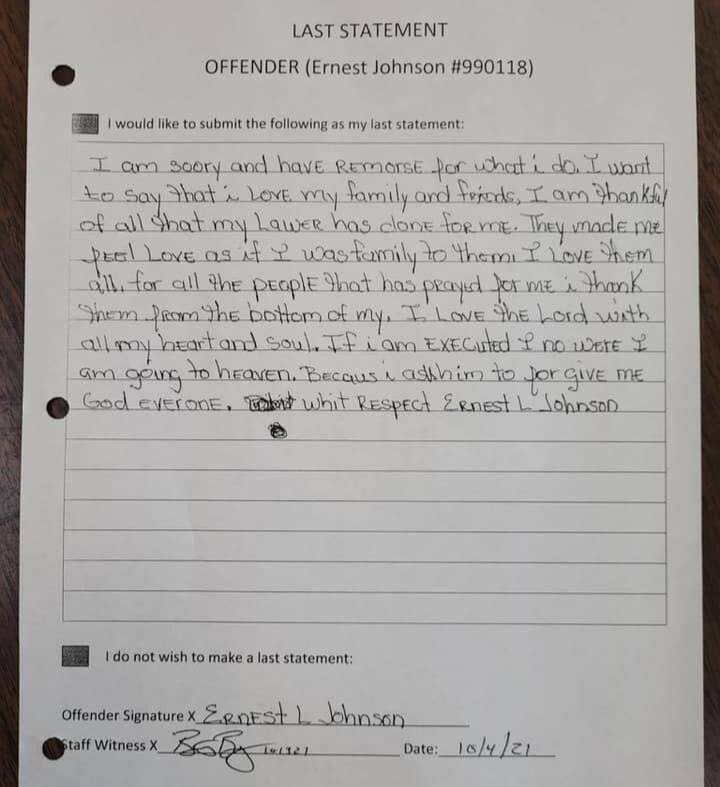 LAST STATEMENT
OFFENDER (Ernest Johnson #990118)
I would like to submit the following as my last statement:
I am soory and have REMORSE for what i do. I want
to say that i LOVE my family and friends, I am thankful
of all that my Lawer has done for me. They made me
feel Love as if I was family to them. I Love them
all. for all the people that has prayed for me i thank
them from the bottom of my. I Love the Lord with
all my heart and soul. If i am EXECuted I no were I
am going to heaven. Becaus i ask him to forgive me
God everone. whit RESPECT ERNEST L Johnson
I do not wish to make a last statement:
Offender Signature X ERNEST L Johnson
Staff Witness X Date: 10/4/21